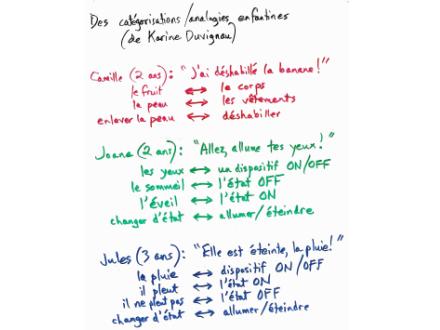 Des catégorisations/analogies enfantines
(de Karine Duvignau)
Camille (2 ans): "J'ai déshabillé la banane!"
le fruit ↔ le corps
la peau ↔ les vêtements
enlever la peau ↔ déshabiller
Joane (2 ans): "Allez, allume tes yeux!"
les yeux ↔ un dispositif ON/OFF
le sommeil ↔ l'état OFF
l'éveil ↔ l'état ON
changer d'état ↔ allumer/éteindre
Jules (3 ans): "Elle est éteinte, la pluie!"
la pluie ↔ dispositif ON/OFF
il pleut ↔ l'état ON
il ne pleut pas ↔ l'état OFF
changer d'état ↔ allumer/éteindre